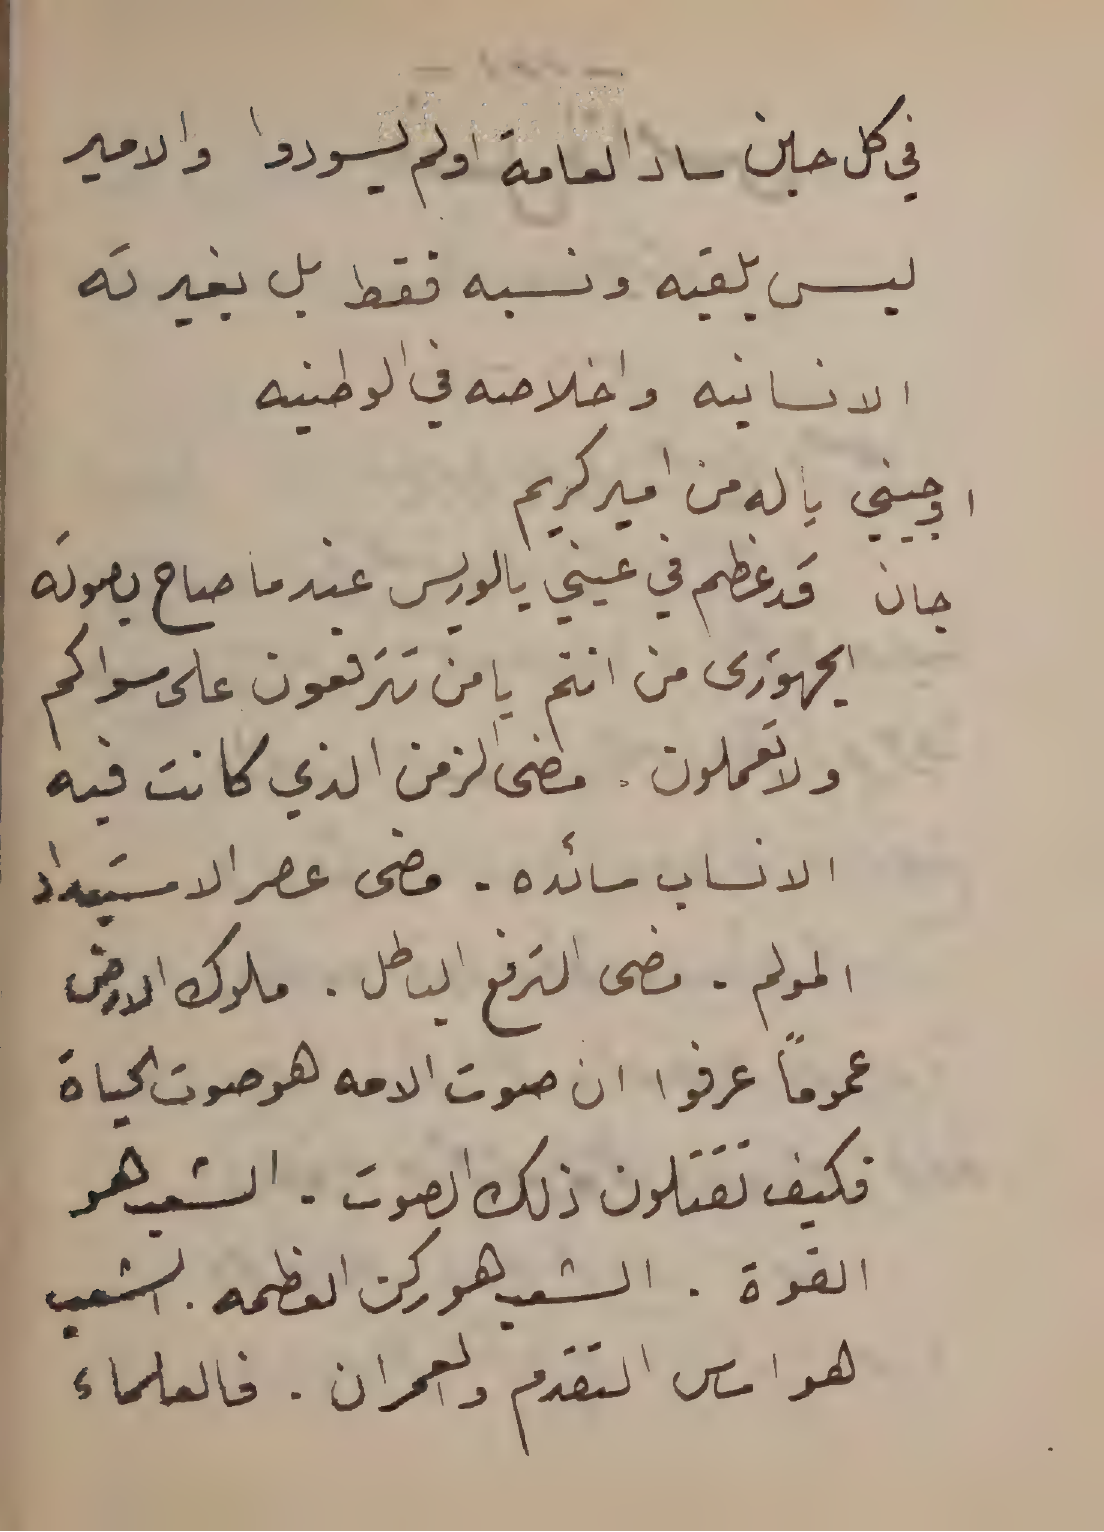 في كل حين ساد العامة اولم يسودوا والامير
ليس بلقبه ونسبه فقط بل بغيرته
الانسانيه واخلاصه في الوطنيه
اوجيني ياله من امير كريم
جان قد عظم في عيني يالويس عندما صاح بصوته
الجهورى من انتم يامن تترفعون على سواكم
ولا تعملون . مضى الزمن الذي كانت فيه
الانساب سائده . مضى عصر الاستبداد
المولم . مضى الترفع الباطل . ملوك الارض
عموماً عرفوا ان صوت الامه هو صوت الحياة
فكيف تقتلون ذلك الصوت . الشعب هو
القوة . الشعب هو ركن العظمه . الشعب
هو اساس التقدم والعمران . فالعلماء